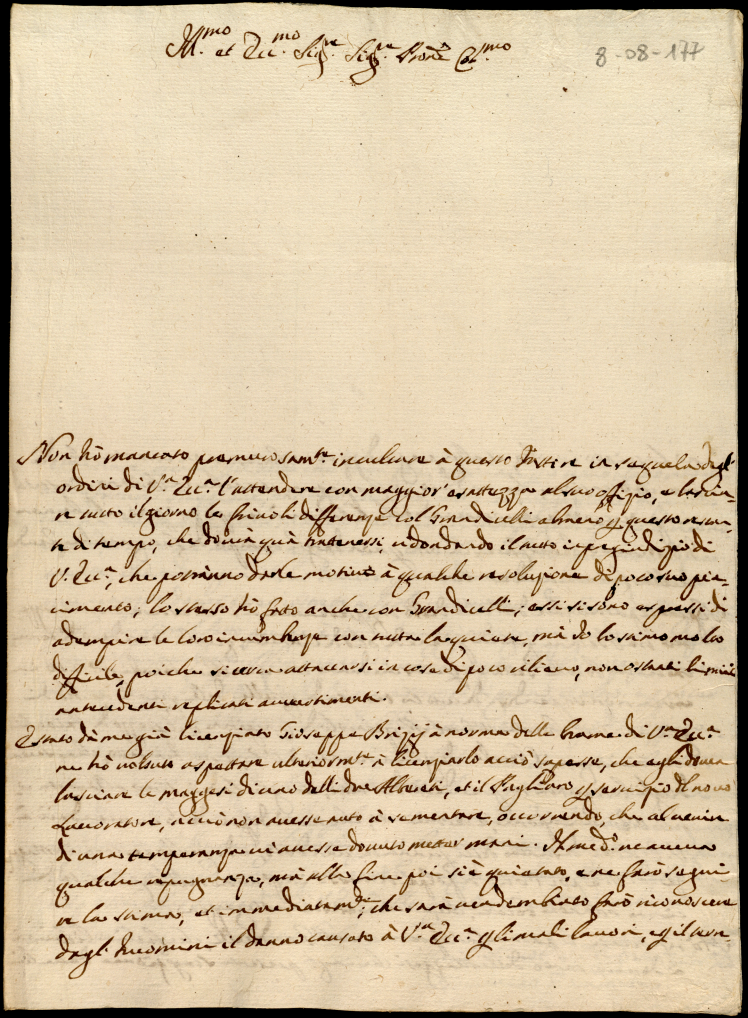 Ill.mo et Ecc.mo Sig.re Sig.re Pron̄e Col.mo
8-08-177
Non hò mancato premurosam.te inculcare à questo Fattore in sequela degl'
ordini di V.ra Ecc.a l'attendere con maggior' esattezza al suo offizio, e lascia-
re tutto il giorno le frivoli differenze col Grandicelli almeno p questo restan-
te di tempo, che dovrà quà trattenersi, ridondando il tutto in pregiudizio di
V. Ecc.a, che potranno darle motivo à qualche resoluzione di poco suo pia-
cimento; lo stesso hò fatto anche con Grandicelli; essi si sono espressi di
adempire le loro incumbenze con tutta la quiete, mà Io lo stimo molto
difficile, poiche si cerca attaccarsi in cose di poco rilievo, non ostanti li miei
antecedenti replicati avvertimenti.
È stato dà me già licenziato Giuseppe Brizij à norma delle brame di V.ra Ecc.a
ne hò voluto aspettare ulteriorm.te à licenziarlo acciò sapesse, che egli doveva
lasciare le maggesi di uno delli due Albereti, et il Pagliaro p servizio del novo
Lavoratore, acciò non avesse auto à sementare, occorrendo, che al venir
di una temperanza vi avesse dovuto metter mani. Il med.o ne aveva
qualche repugnanza, mà alla fine poi si è quietato, e ne farò segui-
re la stima, et immediatam.te, che sarà vendembiato farò riconoscere
dagl' Huomini il danno causato à V.ra Ecc.a p li mali lavori, e p il terre-